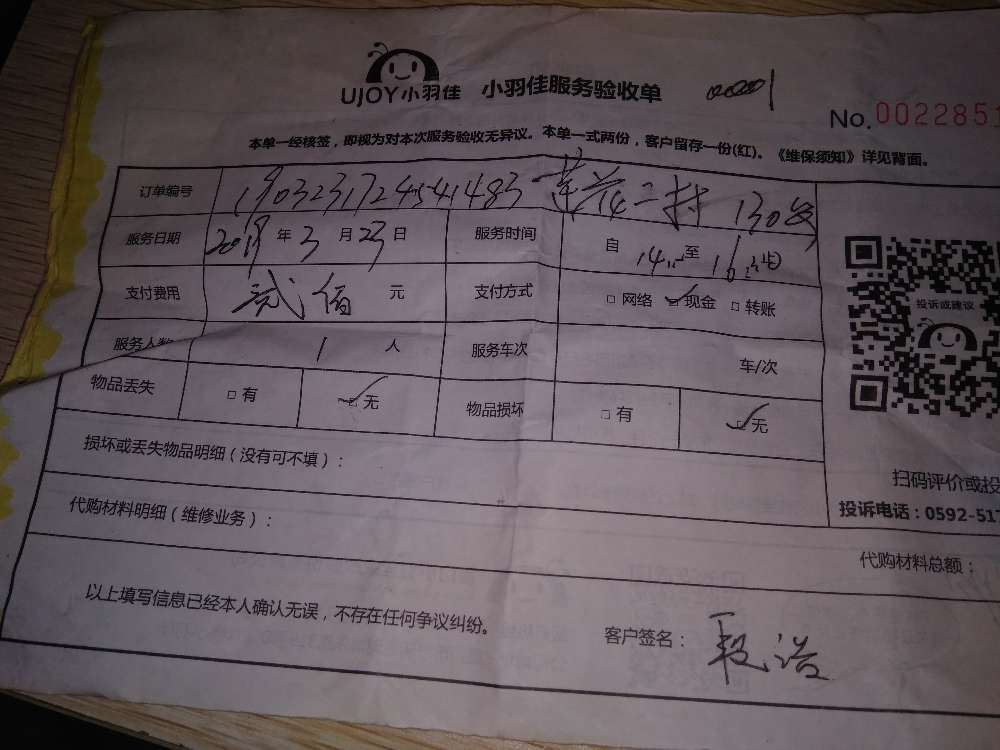 UJOY小羽佳 小羽佳服务验收单 00001
No.0022851
本单一经核签，即视为对本次服务验收无异议。本单一式两份，客户留存一份(红)。《维保须知》详见背面。
订单编号 莲花二村 130号
服务日期 2019 年 3 月 23 日 服务时间 自 14 至 16
支付费用 贰佰 元 支付方式 □ 网络 ☑ 现金 □ 转账
服务人数 1 人 服务车次 车/次
物品丢失 □ 有 ☑ 无 物品损坏 □ 有 ☑ 无
投诉或建议
损坏或丢失物品明细（没有可不填）：
扫码评价或投
投诉电话：0592-517
代购材料明细（维修业务）：
代购材料总额：
以上填写信息已经本人确认无误，不存在任何争议纠纷。
客户签名：